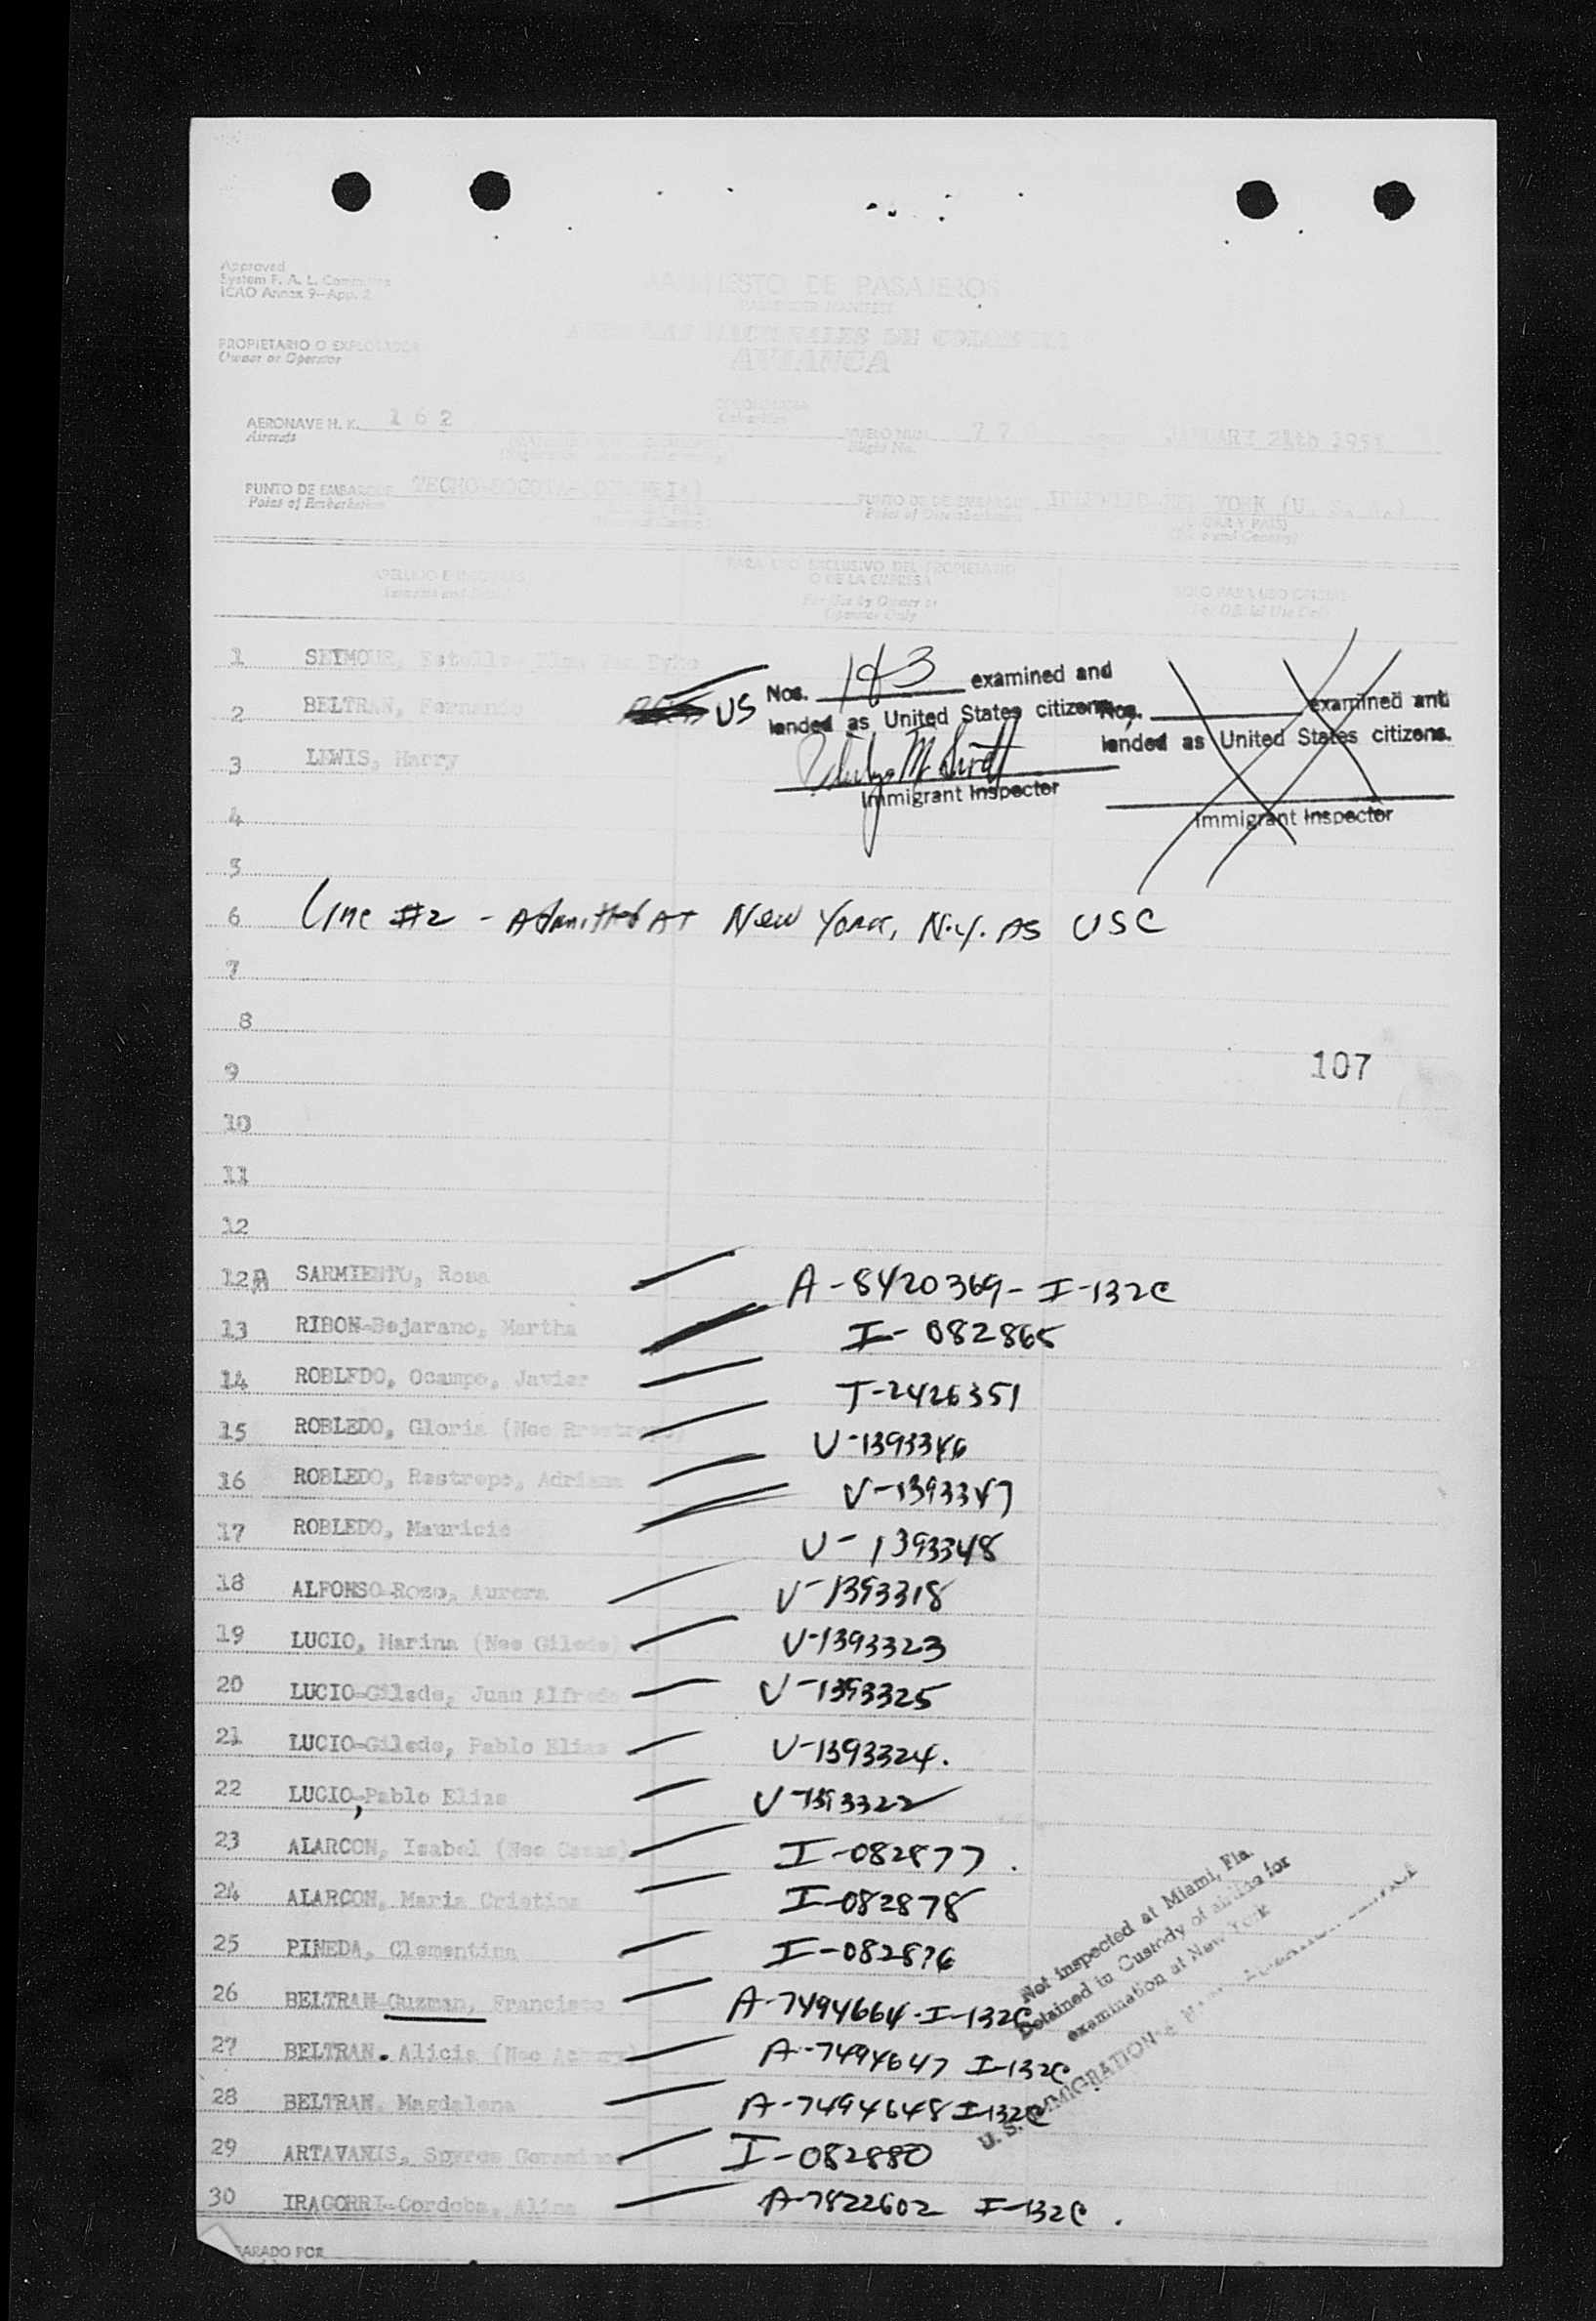 Approved
System F. A. L. Committee
ICAO Annex 9-App. 2
MANIFIESTO DE PASAJEROS
PASSENGER MANIFEST
NACIONALES DE COLOMBIA
AVIANCA
PROPIETARIO O EXPLOTADOR
Owner or Operator
AERONAVE H. K. 162
Aircraft
VUELO NUM.
Flight No.
JANUARY
PUNTO DE EMBARQUE TECHO-BOGOTA-
Point of Embarkation
YORK (U. S. A.)
APELLIDO E INICIALES
PARA USO EXCLUSIVO DEL PROPIETARIO
O DE LA EMPRESA
For Use by Owner or
Operator Only
SOLO PARA USO OFICIAL
For Official Use Only
1 SEYMOUR, Estelle
2 BELTRAN, Fernando US
3 LEWIS, Harry
Nos. 1&3 examined and
landed as United States citizens.
Immigrant Inspector
Nos. examined and
landed as United States citizens.
Immigrant Inspector
4
5
6 Line #2 - Admitted AT New York, N.Y. AS USC
7
8
107
9
10
11
12
12A SARMIENTO, Rosa A-8420369-I-132C
13 RIBON-Bejarano, Martha I-082865
14 ROBLEDO, Ocampo, Javier T-2426351
15 ROBLEDO, Gloria (Nee V-1393346
16 ROBLEDO, Restrepo, Adriana V-1393347
17 ROBLEDO, Mauricio V-1393348
18 ALFONSO-Rozo, Aurora V-1393318
19 LUCIO, Marina (Nee Gilede) V-1393323
20 LUCIO-Gilede, Juan Alfredo V-1393325
21 LUCIO-Gilede, Pablo Elias V-1393324.
22 LUCIO, Pablo Elias V-1393322
23 ALARCON, Isabel (Nee Casas) I-082877.
24 ALARCON, Maria Cristina I-082878
25 PINEDA, Clementina I-082876
26 BELTRAN-Guzman, Francisco A-7494664-I-132C
27 BELTRAN. Alicia (Nee A-7494647 I-132C
28 BELTRAN, Magdalena A-7494648 I-132C
29 ARTAVANIS, Spyros I-082880
30 IRAGORRI-Cordoba, Alina A-7822602 I-132C.
Not inspected at Miami, Fla.
Detained in Custody of airline for
examination at New York
U. S. IMMIGRATION &
PARADO POR